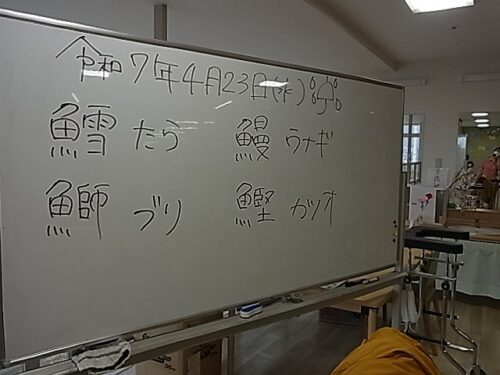 令和7年4月23日(水)
鱈 たら 鰻 ウナギ
鰤 ブリ 鰹 カツオ